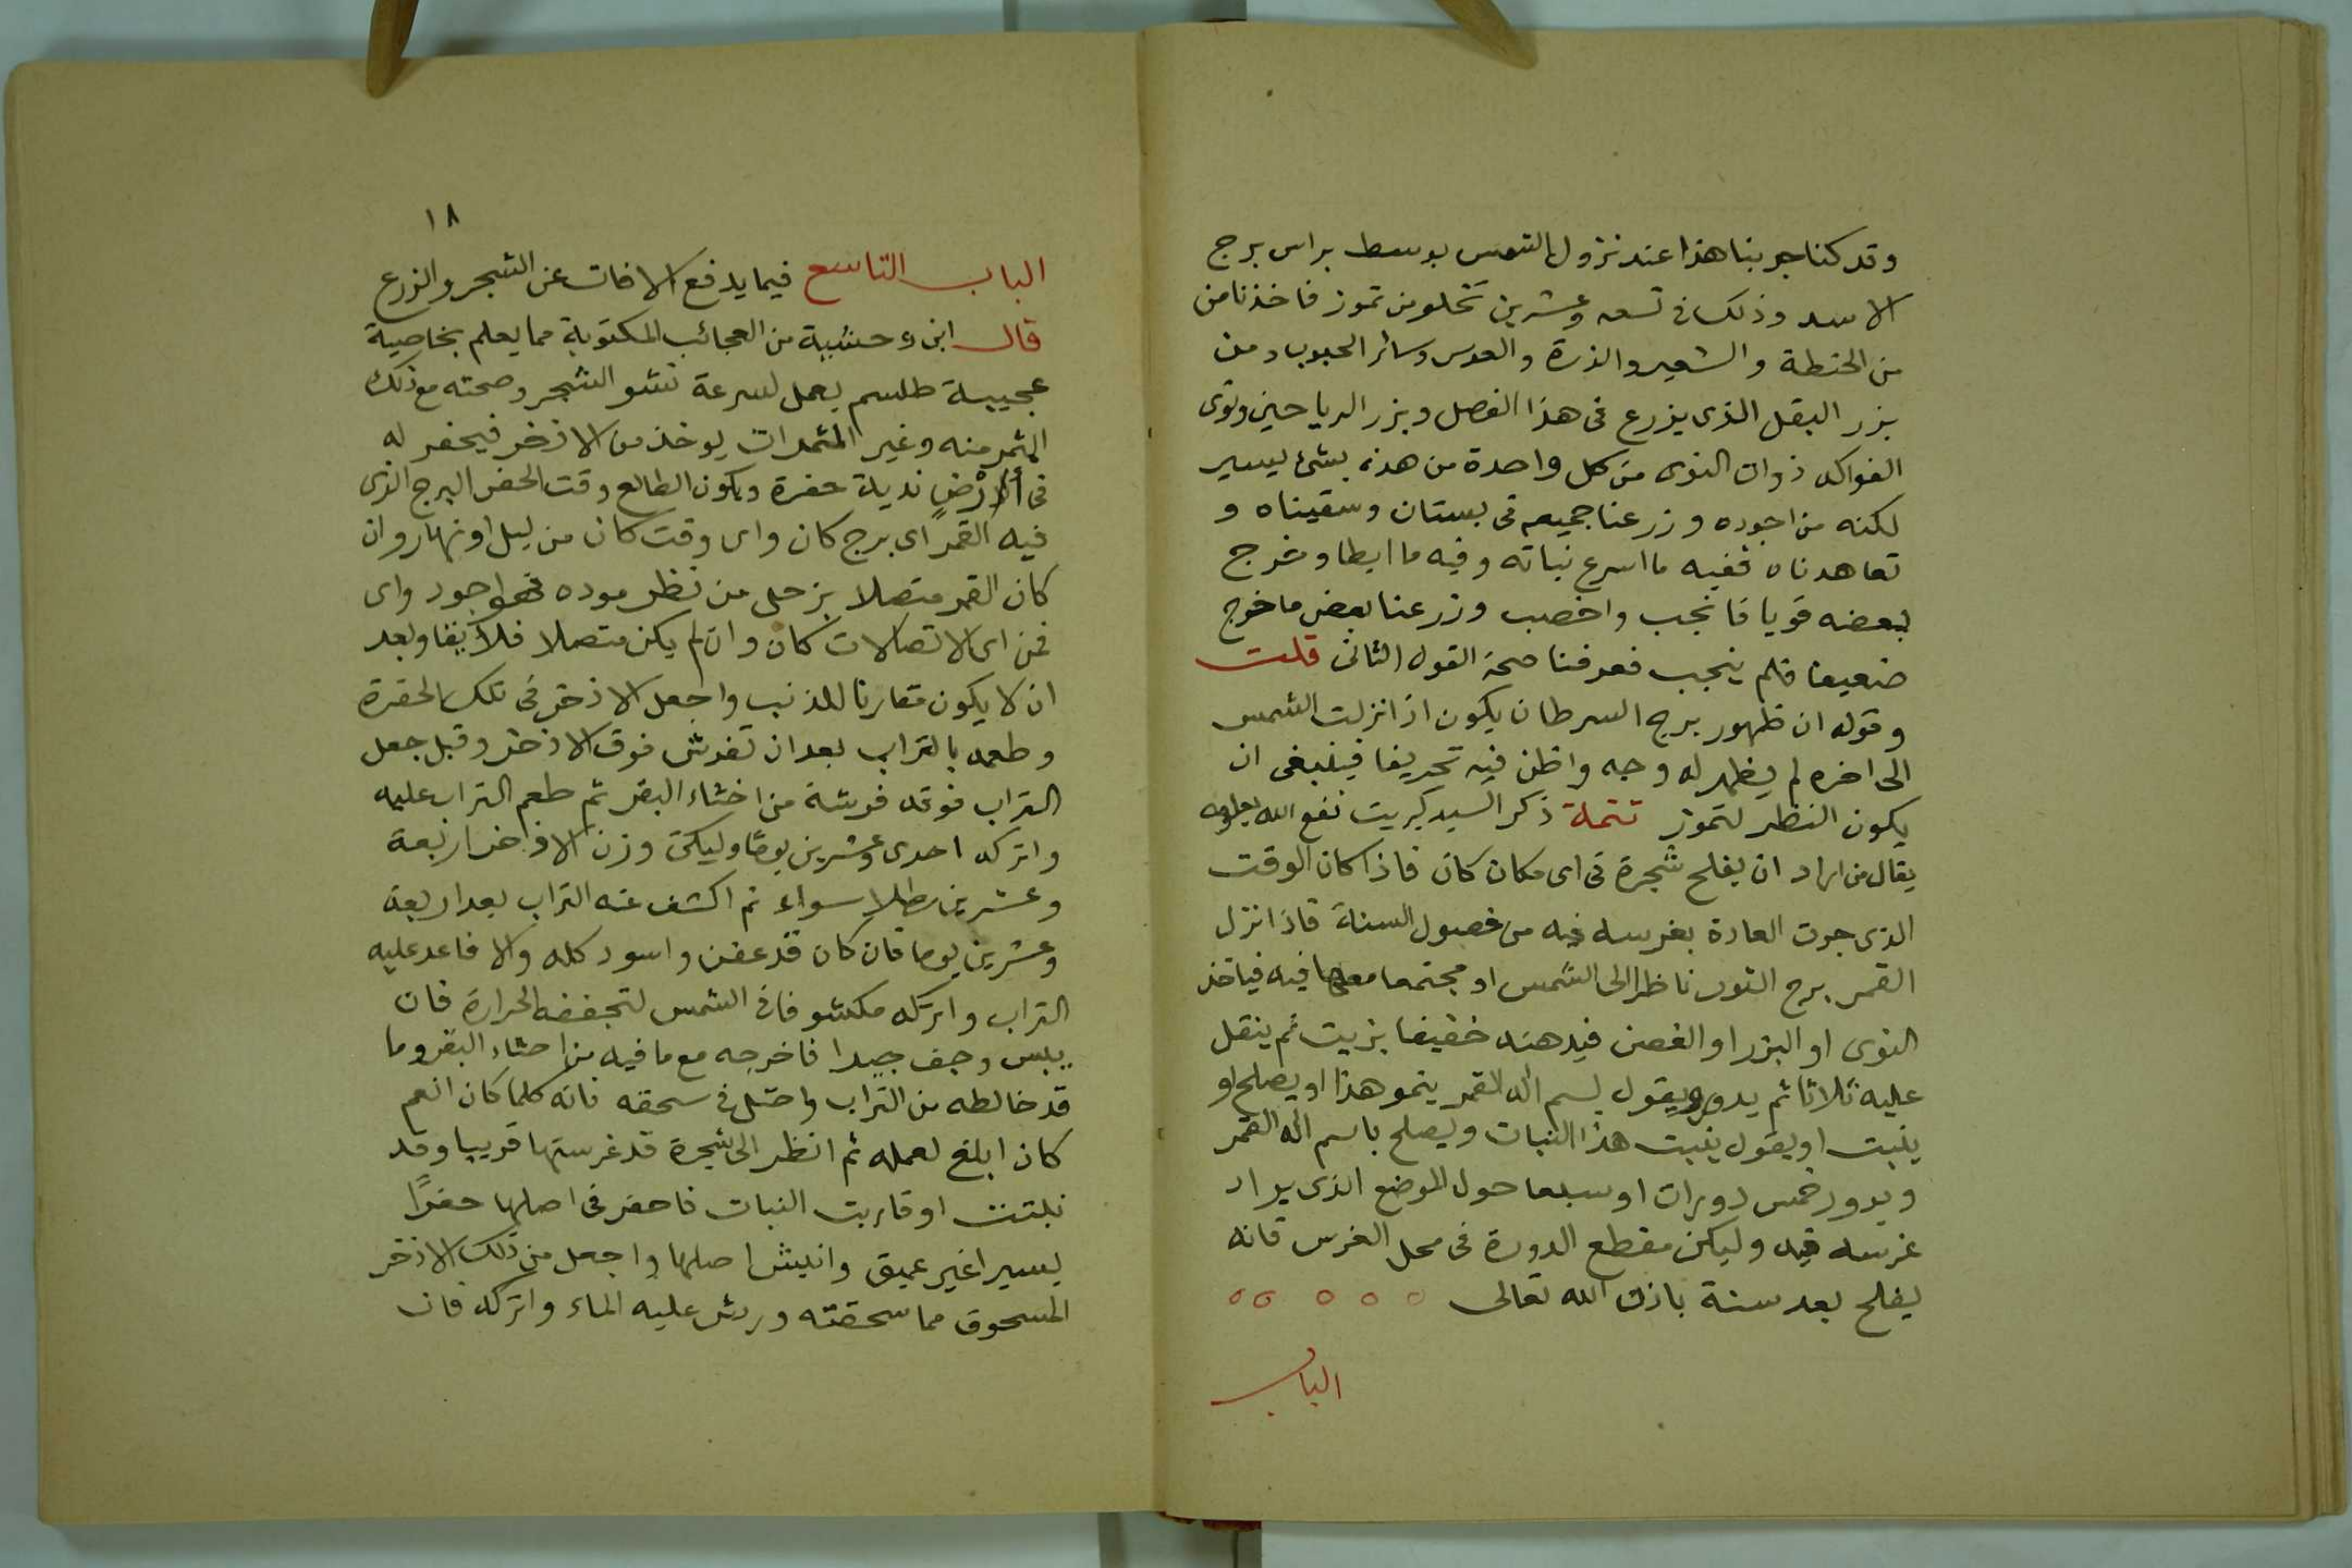 وقد كنا جربنا هذا عند نزول الشمس بوسط براس برج
الاسد وذلك فى تسعه وعشرين تخلو من تموز فاخذنا من
من الحنطة والشعير والذرة والعدس وسائر الحبوب ومن
بزر البقل الذى يزرع فى هذا الفصل وبزر الرياحين ونوى
الفواكه ذوات النوى من كل واحدة من هذه بشئ يسير
لكنه من اجوده وزرعنا جميعه فى بستان وسقيناه و
تعاهدناه ففيه ما اسرع نباته وفيه ما ابطا وخرج
بعضه قويا فانجب واخصب وزرعنا بعض ما خرج
ضعيفا فلم ينجب فعرفنا صحة القول الثانى قلت
وقوله ان ظهور برج السرطان يكون اذا نزلت الشمس
الى اخره لم يظهر له وجه واظن فيه تحريفا فينبغى ان
يكون النظر لتموز تتمة ذكر السيد كبريت نفع الله بعلومه
يقال من اراد ان يفلح شجرة فى اى مكان كان فاذا كان الوقت
الذى جرت العادة بغرسه فيه من فصول السنة فاذا نزل
القمر برج الثور ناظرا الى الشمس او مجتمعا معها فيه فياخذ
النوى او البزر او الغصن فيدهنه خفيفا بزيت ثم يتفل
عليه ثلاثا ثم يدور ويقول بسم اله القمر ينمو هذا او يصلح او
ينبت او يقول ينبت هذا النبات ويصلح باسم اله القمر
ويدور خمس دورات او سبعا حول الموضع الذى يراد
غرسه فيه وليكن مقطع الدورة فى محل الغرس فانه
يفلح بعد سنة باذن الله تعالى ه ه ه ه ه
الباب
١٨
الباب التاسع فيما يدفع الافات عن الشجر والزرع
قال ابن وحشية من العجائب المكتوبة مما يعلم بخاصية
عجيبة طلسم يعمل لسرعة نشو الشجر وصحته مع ذلك
المثمر منه وغير المثمرات يوخذ من الاذخر فيحفر له
فى أرْضٍ ندية حفرة ويكون الطالع وقت الحفر البرج الذى
فيه القمر اى برج كان واى وقت كان من ليل او نهار وان
كان القمر متصلا بزحل من نظر موده فهو اجود واى
فمن اى الاتصالات كان وان لم يكن متصلا فلا يبقا وبعد
ان لا يكون مقارنا للذنب واجعل الاذخر فى تلك الحفرة
وطمه بالتراب بعد ان تفرش فوق الاذخر وقبل جعل
التراب فوقه فرشة من اخثاء البقر ثم طعم التراب عليه
واتركه احدى وعشرين يومًا وليكن وزن الاذخر اربعة
وعشرين رطلا سواء ثم اكشف عنه التراب بعد اربعة
وعشرين يوما فان كان قد عفن واسود كله والا فاعد عليه
التراب واتركه مكشوفا فى الشمس لتجففه الحرارة فان
يبس وجف جيدا فاخرجه مع ما فيه من احثاء البقر وما
قد خالطه من التراب واحتل فى سحقه فانه كلما كان انعم
كان ابلغ لعمله ثم انظر الى شجرة قد غرستها قريبا وقد
نبتت او قاربت النبات فاحفر فى اصلها حفرًا
يسيرا غير عميق وانبش اصلها واجعل من ذلك الاذخر
المسحوق مما سحقته ورش عليه الماء واتركه فان